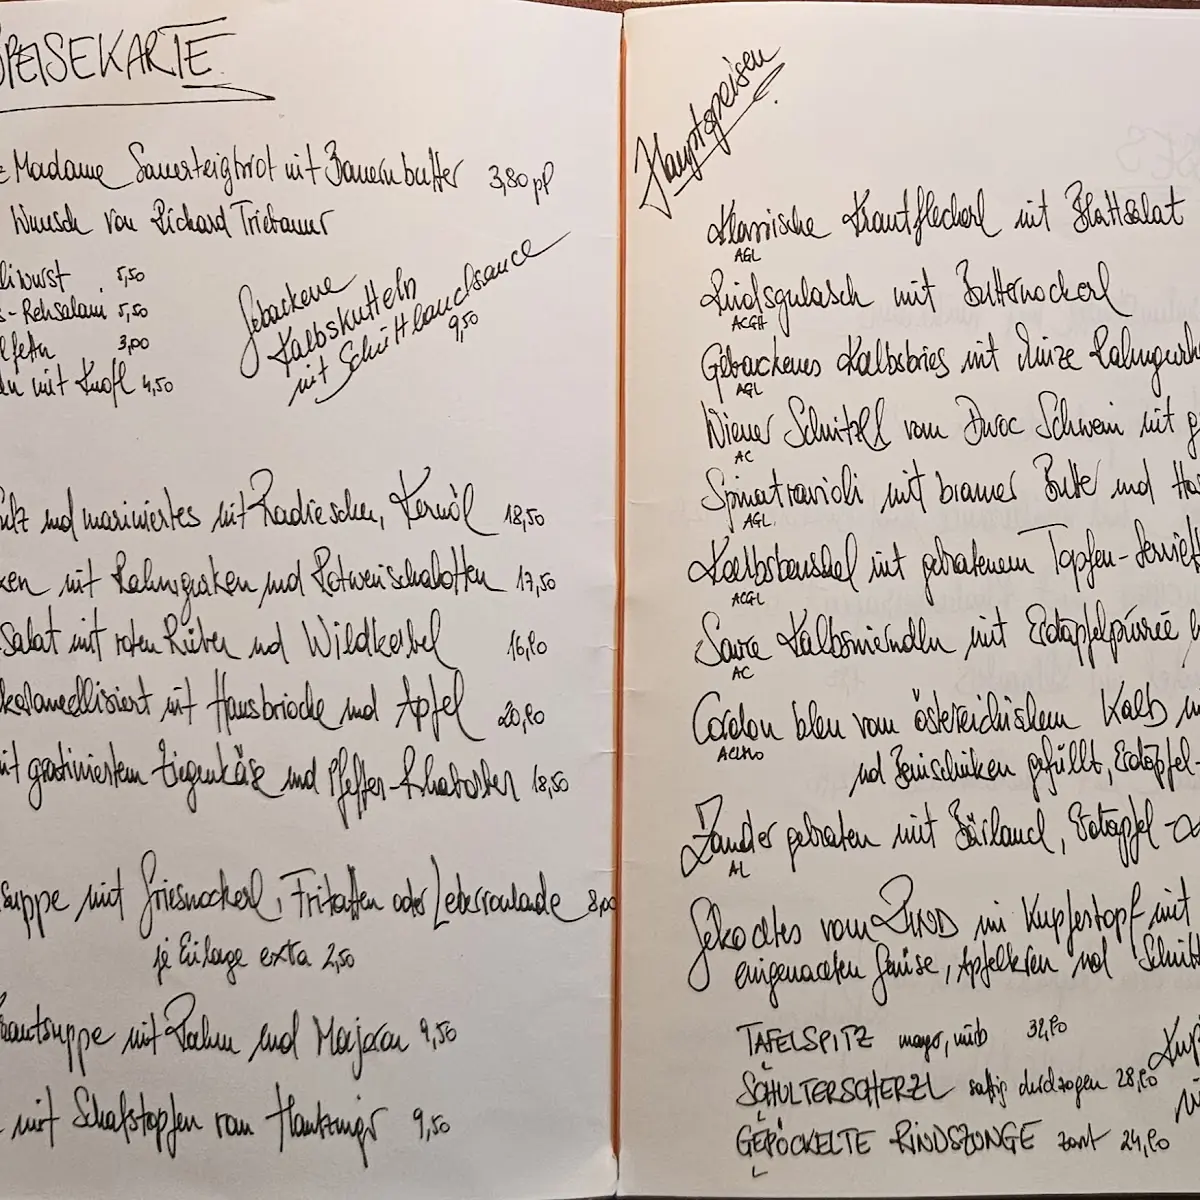 SPEISEKARTE
Madame Sauerteigbrot mit Bauernbutter 3,80 pP
Wunsch von Richard Triebaumer
5,50
s-Rehsalami 5,50
3,00
mit Knofl 4,50
Gebackene
Kalbskutteln
mit Schnittlauchsauce
9,50
und mariniertes mit Radieschen, Kernöl 18,50
mit Rahmgurken und Rotweinschalotten 17,50
Salat mit roten Rüben und Wildkerbel 16,80
karamellisiert mit Hausbrioche und Apfel 20,80
mit gratiniertem Ziegenkäse und Pfeffer-Rhabarber 18,50
suppe mit Griesnockerl, Fritatten oder Leberroulade 8,00
je Einlage extra 2,50
krautsuppe mit Rahm und Majoran 9,50
mit Schafstopfen vom 9,50
Hauptspeisen
Klassische Krautfleckerl mit Blattsalat
AGL
Rindsgulasch mit Butternockerl
ACGH
Gebackenes Kalbsbries mit Minze Rahmgurke
AGL
Wiener Schnitzel vom Duroc Schwein mit g
AC
Spinatravioli mit brauner Butter und Has
AGL
Kalbsbeuschel mit gebratenem Topfen-Serviett
ACGL
Saure Kalbsnierndln mit Erdäpfelpüree
AC
Cordon bleu vom österreichischem Kalb
und Beinschinken gefüllt, Erdäpfel-
Zander gebraten mit Bärlauch, Erdäpfel-
AL
Gekochtes vom RIND im Kupfertopf mit
eingemachten Gemüse, Apfelkren und Schnitt
TAFELSPITZ mager, mürb 32,80
L
SCHULTERSCHERZL saftig durchzogen 28,80
L
GEPÖCKELTE RINDSZUNGE zart 24,80
L
Kup